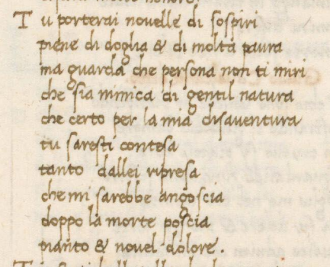 Tu porterai novelle di sospiri
piene di doglia & di molta paura
ma guarda che persona non ti miri
che sia nimica di gentil natura
che certo per la mia disaventura
tu saresti contesa
tanto dallei ripresa
che mi sarebbe angoscia
doppo la morte poscia
pianto & novel dolore.